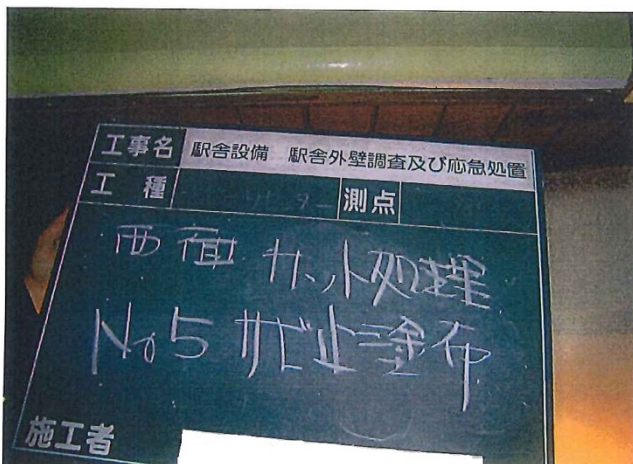 工事名 駅舎設備 駅舎外壁調査及び応急処置
工種 測点
西面 カット処理
No5 サビ止塗布
施工者